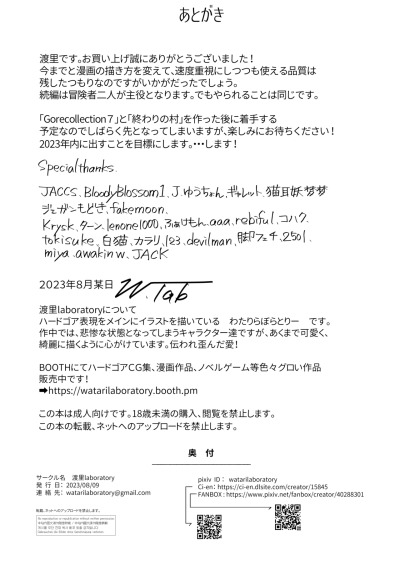 あとがき
渡里です。お買い上げ誠にありがとうございました！
今までと漫画の描き方を変えて、速度重視にしつつも使える品質は
残したつもりなのですがいかがだったでしょう。
続編は冒険者二人が主役となります。でもやられることは同じです。
「Gorecollection７」と「終わりの村」を作った後に着手する
予定なのでしばらく先となってしまいますが、楽しみにお待ちください！
2023年内に出すことを目標にします。・・・します！
Specialthanks
JACCS、BloodyBlossom1、J、ゆうちゃん、ギャレット、猫耳妹夢夢
ジェガンもどき、fakemoon、
Krysk、ターン、lenone1000、ふぁけもん、aaa、rebiful、コハク、
tokisuke、白猫、カラリ、123、devilman、脚フェチ、2501、
miya、awakinw、JACK
2023年8月某日 W.lab
渡里laboratoryについて
ハードゴア表現をメインにイラストを描いている　わたりらぼらとりー　です。
作中では、悲惨な状態となってしまうキャラクター達ですが、あくまで可愛く、
綺麗に描くように心がけています。伝われ歪んだ愛！
BOOTHにてハードゴアCG集、漫画作品、ノベルゲーム等色々グロい作品
販売中です！
➡https://watarilaboratory.booth.pm
この本は成人向けです。18歳未満の購入、閲覧を禁止します。
この本の転載、ネットへのアップロードを禁止します。
奥　付
サークル名　渡里laboratory
発 行 日：2023/08/09
連 絡 先：watarilaboratory@gmail.com
pixiv ID：　watarilaboratory
Ci-en：https://ci-en.dlsite.com/creator/15845
FANBOX：https://www.pixiv.net/fanbox/creator/40288301
転載、ネットへのアップロードを禁止します。